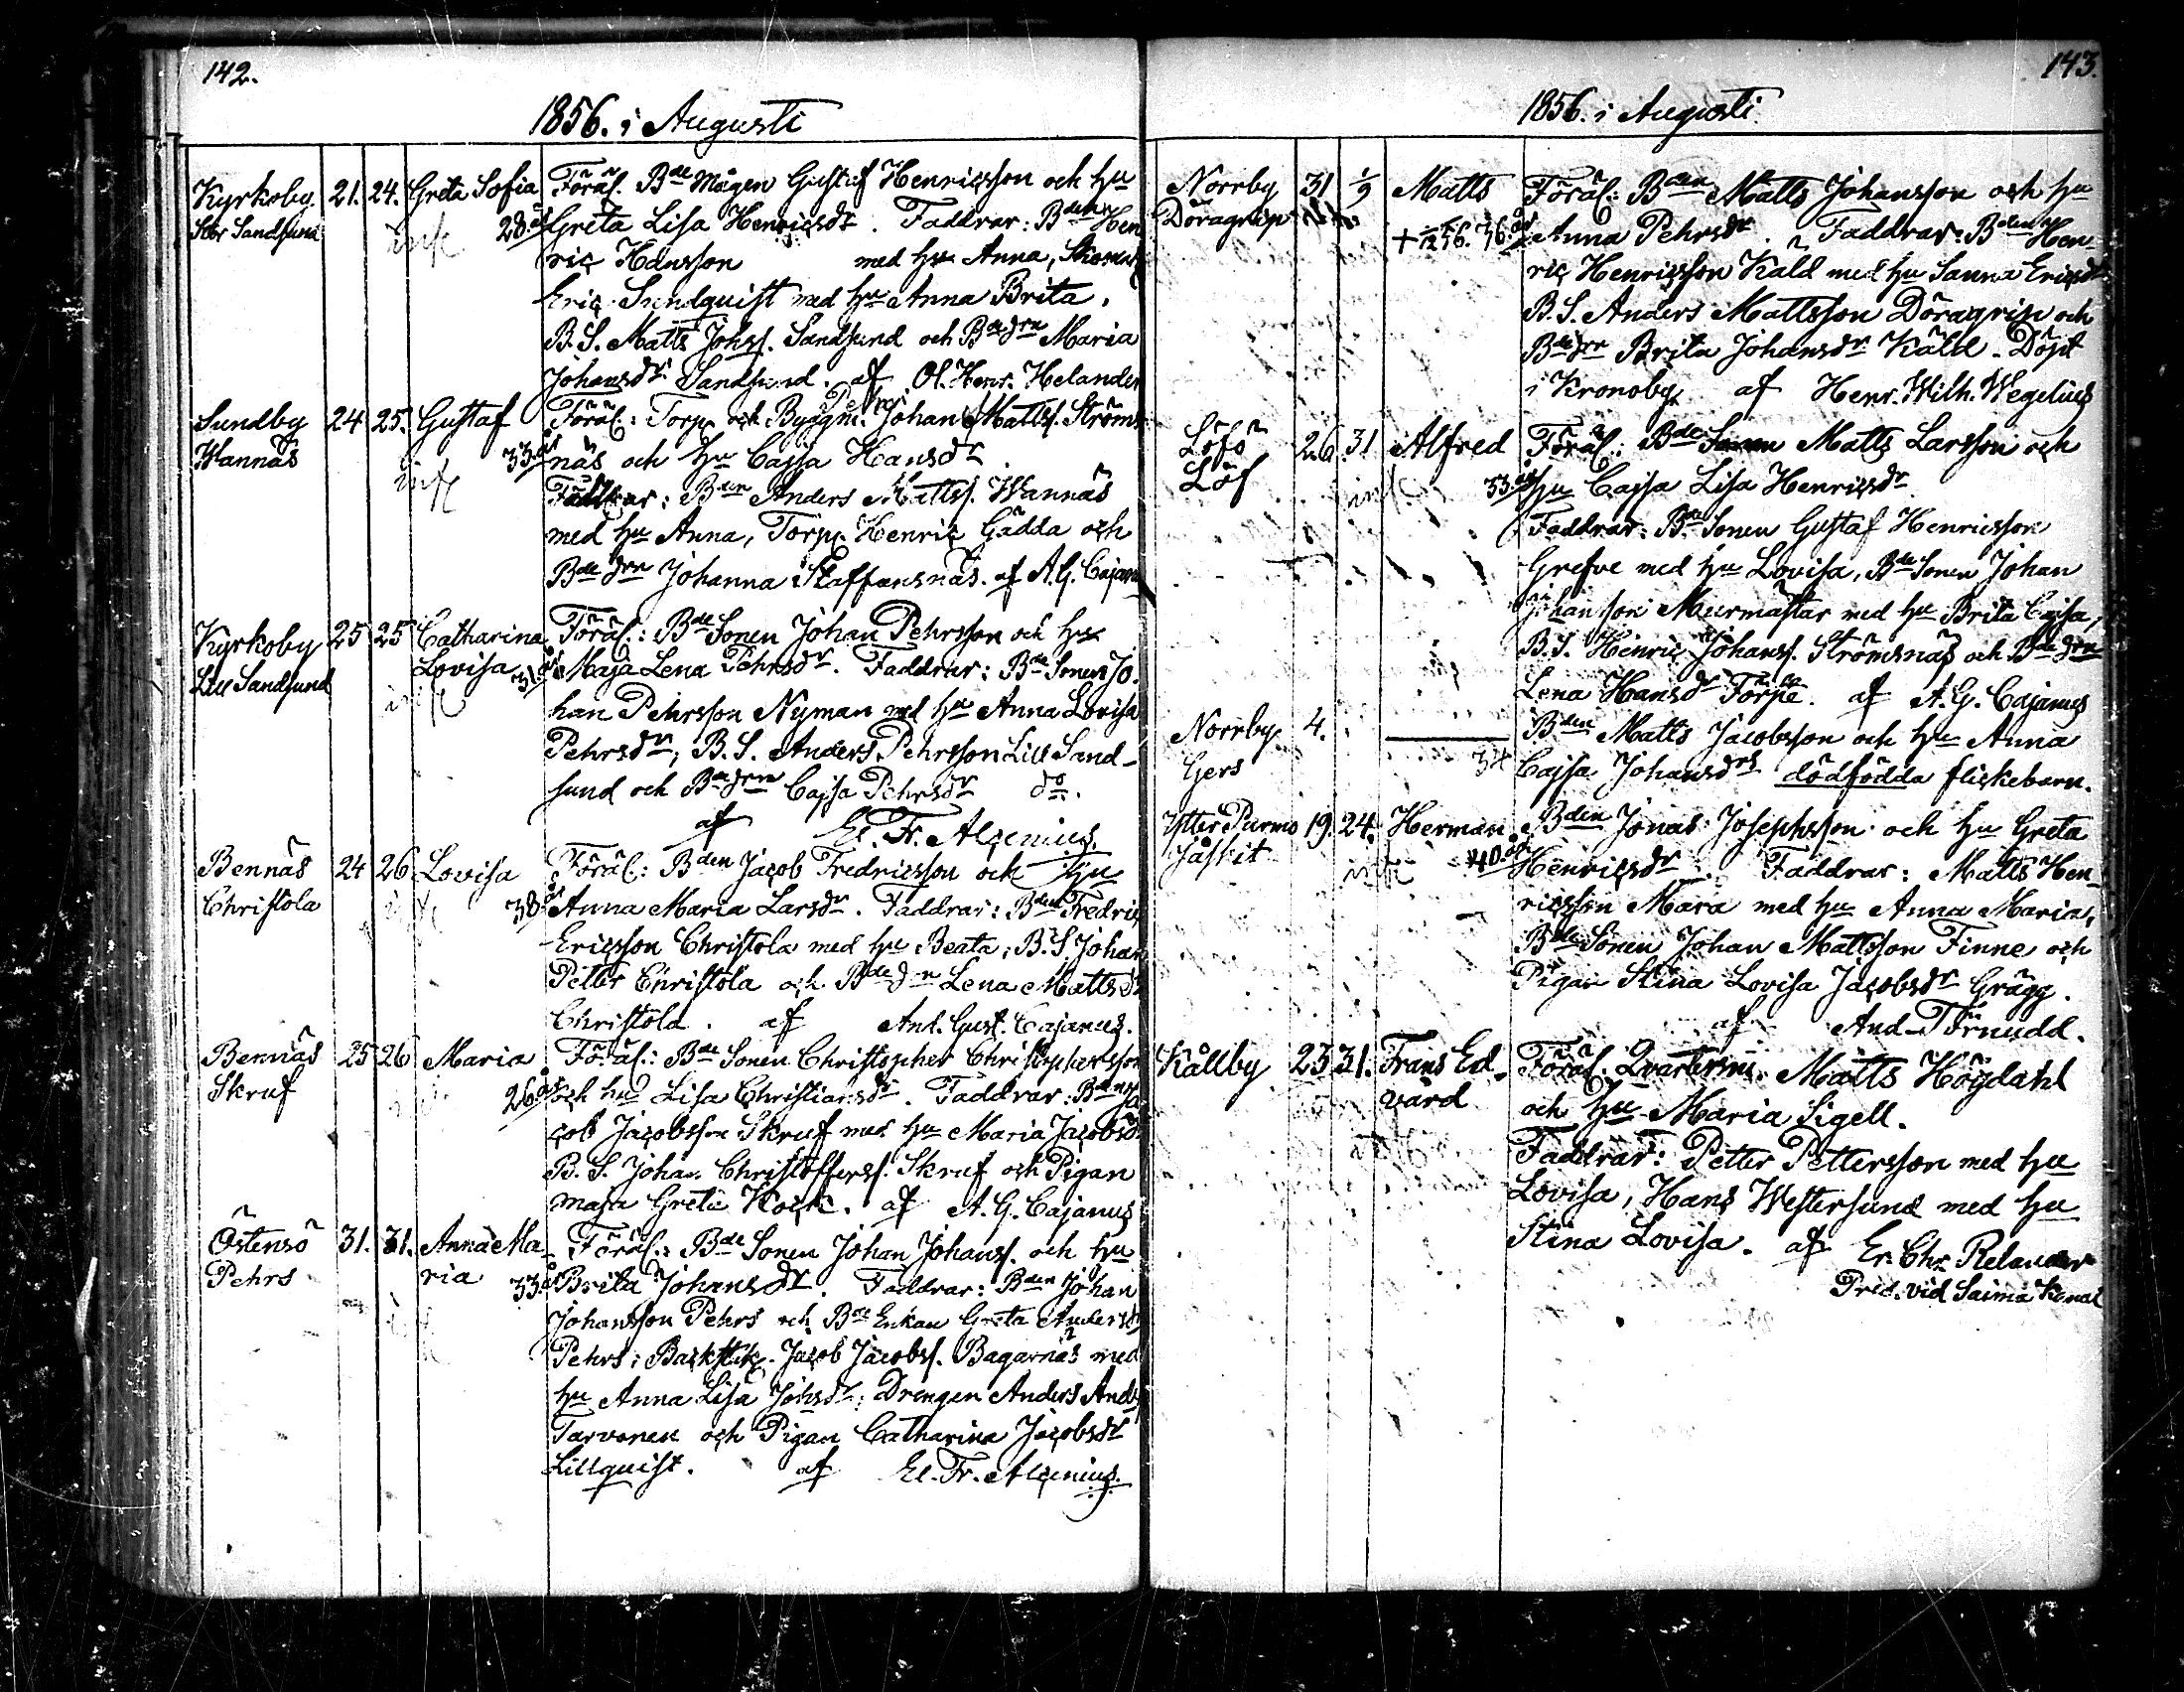 142.
1856. i Augusti
Kyrkoby 21. 24. Greta Sofia Föräl. Bde Mågen Gustaf Henricsson och hu
Stor Sandsund 28. år Greta Lisa Henricsdr. Faddrar: Bden Hen
ric Hansson med hu Anna,
Eric Sundquist med hu Anna Brita.
B.S. Matts Johss. Sandsund och Bdedrn Maria
Johansdr Sandsund. af Ol. Henr. Helander
Sundby 24 25. Gustaf Föräl.: Torp. och Byggm. Johan Matts. Ströms
Wannäs 33. år näs och hu Cajsa Hansdr
Faddrar: Bden Anders Mattss. Wannäs
med hu Anna, Torp. Henric Gädda och
Bdedrn Johanna Staffansnäs. af A.G. Cajan
Kyrkoby 25 25 Catharina Föräl.: Bde Sonen Johan Pehrsson och hu
Lill Sandsund Lovisa 31. år Maja Lena Pehrsdr. Faddrar: Bde Sonen Jo
han Pehrsson Nyman med hu Anna Lovisa
Pehrsdr, B.S. Anders Pehrsson Lill Sand-
sund och Bdedrn Cajsa Pehrsdr do.
af El. Fr. Alcenius.
Bennäs 24 26 Lovisa Föräl.: Bden Jacob Fredricsson och Hu
Christola 38. år Anna Maria Larsdr. Faddrar: Bden Fredric
Ericsson Christola med hu Beata; B.S. Johan
Petter Christola och Bdedrn Lena Mattsdr
Christola. af Ant. Gust. Cajanus.
Bennäs 25 26 Maria Föräl.: Bde Sonen Christopher Christophersson
Skruf 26. år och hu Lisa Christiansdr. Faddrar: Bden Ja
cob Jacobsson Skruf med hu Maria Jacobsdr
B.S. Johan Christofferss. Skruf och Pigan
Maja Greta Kock. af A.G. Cajanus
Östensö 31. 31. Anna Ma- Föräl.: Bde Sonen Johan Johanss. och hu
Pehrs ria 33. år Brita Johansdr. Faddrar: Bden Johan
Johansson Pehrs och Bde Enkan Greta Andersdr
Pehrs; Backstuk. Jacob Jacobss. Bagarnäs med
hu Anna Lisa Johsdr; Drengen Anders Ands
Tarvonen och Pigan Catharina Jacobsdr
Lillquist. af El. Fr. Alcenius.
143.
1856. i Augusti
Norrby 31 1/9 Matts Föräl: Bden Matts Johansson och hu
Döragrip 36. år Anna Pehrsdr. Faddrar: Bden Hen
ric Henricsson Käld med hu Sanna Ericsdr
B.S. Anders Mattsson Döragrip och
Bdedrn Brita Johansdr Käld. Döpt
i Kronoby af Henr. Wilh. Wegelius
Löfö 26 31 Alfred Föräl: Bde Sonen Matts Larsson och
Löf 33. år Hu Cajsa Lisa Henricsdr
Faddrar: Bde Sonen Gustaf Henricsson
Grefve med hu Lovisa, Bde Sonen Johan
Johansson Murmästar med hu Brita Cajsa,
B.S. Henric Johanss. Strömsnäs och Bdedrn
Lena Hansdr Torpe. af A.G. Cajanus
Norrby 4. Bden Matts Jacobsson och hu Anna
Gers 34 Cajsa Johansdrs dödfödda flickebarn.
Ytter Purmo 19. 24. Herman Bden Jonas Josephsson och hu Greta
40. år Henricsdr. Faddrar: Matts Hen-
ricsson Mara med hu Anna Maria,
Bde Sonen Johan Mattsson Finne och
Pigan Stina Lovisa Jacobsdr Grägg.
af And. Törnudd.
Kållby 23 31. Frans Ed- Föräl. Qvarterm. Matts Högdahl
vard och Hu Maria Sigell.
Faddrar: Petter Pettersson med hu
Lovisa, Hans Westersund med hu
Stina Lovisa. af Er. Chr. Relander
Pred. vid Saima Kanal